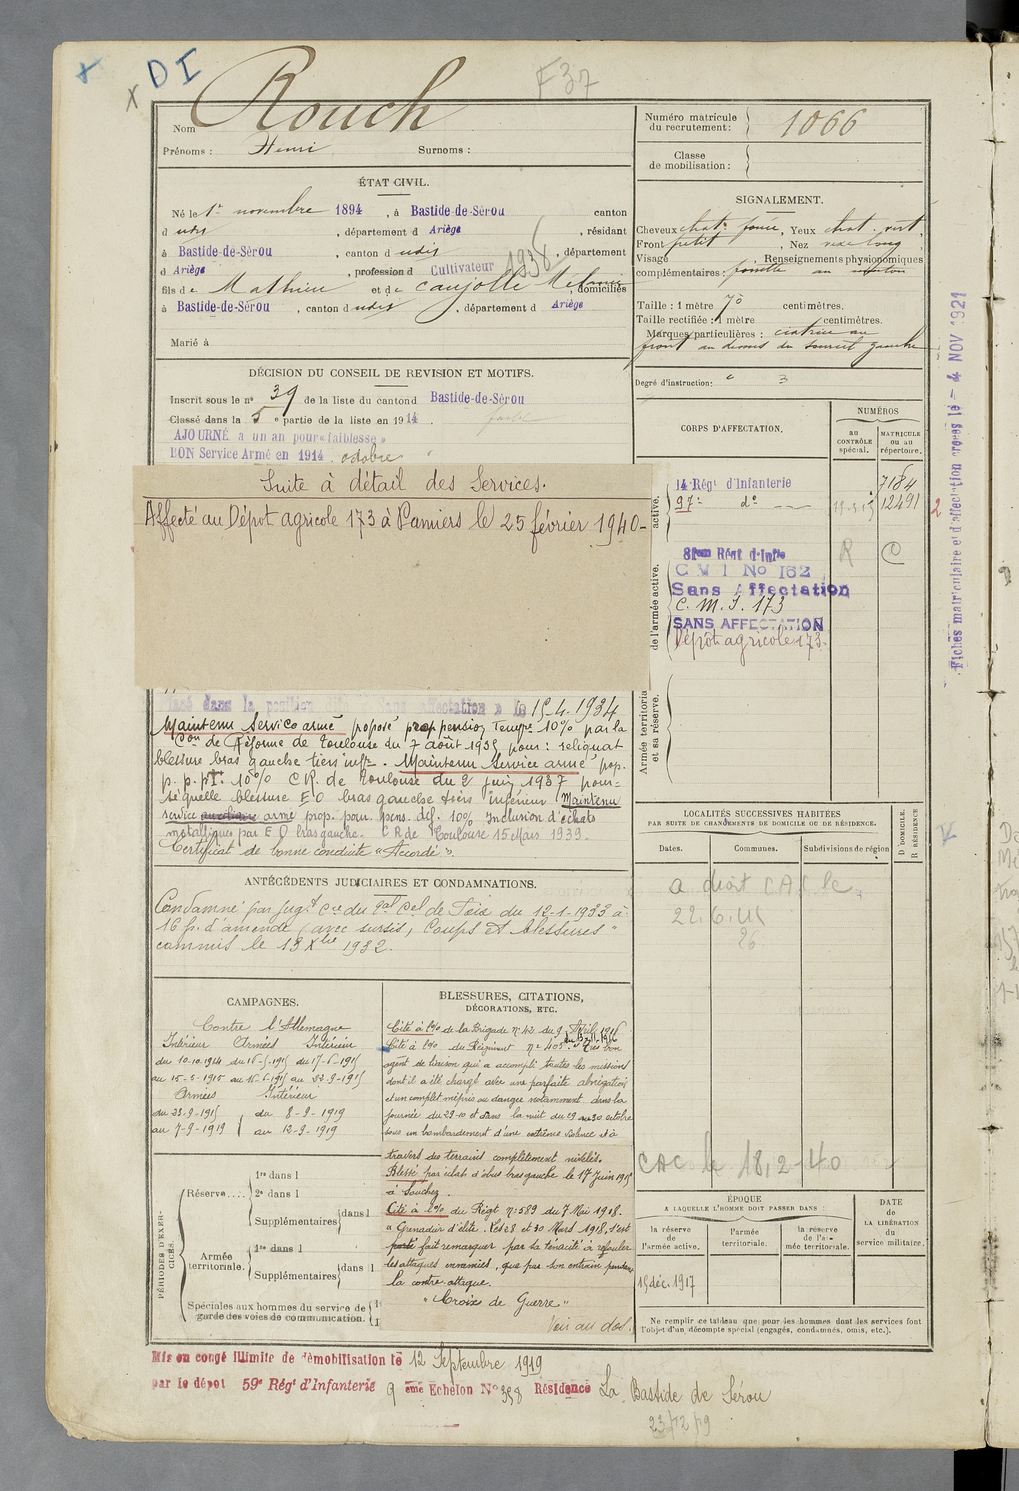 DI
F37
Nom Rouch
Prénoms : Henri Surnoms :
Numéro matricule du recrutement : 1066
Classe de mobilisation :
ÉTAT CIVIL.
Né le 1er novembre 1894, à Bastide-de-Sérou canton
d udit, département d Ariège, résidant
à Bastide-de-Sérou, canton d udit, département
d Ariège, profession d Cultivateur 1936
fils de Mathieu et de Caujolle Mélanie, domiciliés
à Bastide-de-Sérou, canton d udit, département d Ariège
Marié à
SIGNALEMENT.
Cheveux chat. foncé, Yeux chat. vert,
Front petit, Nez long,
Visage , Renseignements physionomiques
complémentaires : fossette au menton
Taille : 1 mètre 70 centimètres.
Taille rectifiée : 1 mètre centimètres.
Marques particulières : cicatrice au
front au dessus du sourcil gauche
Degré d'instruction: 3
DÉCISION DU CONSEIL DE REVISION ET MOTIFS.
Inscrit sous le n° 39 de la liste du canton d Bastide-de-Sérou
Classé dans la 5e partie de la liste en 1914.
AJOURNÉ à un an pour « faiblesse »
BON Service Armé en 1914 octobre
Suite à détail des Services.
Affecté au Dépot agricole 173 à Pamiers le 25 février 1940-
CORPS D'AFFECTATION.
NUMÉROS
au CONTRÔLE spécial.
MATRICULE ou au répertoire.
14 Régt d'Infanterie 7184
97e do 12491
2
81eme Régt d'Infie R C
C M I No 162
Sans Affectation
C. M. I. 173
SANS AFFECTATION
Dépôt agricole 173.
active.
de l'armée active.
Armée territoriale et sa réserve.
Fiches matriculaire et d'affectation créées le - 4 NOV 1921
Sans affectation » le 15.4.1934
Maintenu Service armé proposé prop pension Tempre 10% par la
Con de Réforme de Toulouse du 7 août 1935 pour : reliquat
blessure bras gauche tiers infr. Maintenu Service armé prop.
p. p. pt. 10% C R. de Toulouse du 2 juin 1937 pour
séquelle blessure E O bras gauche tiers inférieur Maintenu
service auxiliaire armé prop. pour. pens. déf. 10% Inclusion d'éclats
metalliques par E O bras gauche. C R de Toulouse 15 Mars 1939.
Certificat de bonne conduite "Accordé".
ANTÉCÉDENTS JUDICIAIRES ET CONDAMNATIONS.
Condamné par Jugt du Cel de Foix du 12-1-1933 à
16 f. d'amende (avec sursis, Coups et blessures"
commis le 13 Xbre 1932.
LOCALITÉS SUCCESSIVES HABITÉES
PAR SUITE DE CHANGEMENTS DE DOMICILE OU DE RÉSIDENCE.
Dates. Communes. Subdivisions de région
D DOMICILE. R RÉSIDENCE
a droit CAC le
CAC le 18.2.40
CAMPAGNES.
Contre l'Allemagne
Intérieur Armées Intérieur
du 10.10.1914 du 16-5-1915 du 17-6-1915
au 15-5-1915 au 16-6-1915 au 22-9-1915
Armées Intérieur
du 23-9-1915 du 8-9-1919
au 7-9-1919 au 12-9-1919
BLESSURES, CITATIONS,
DÉCORATIONS, ETC.
Cité à l'o/o de la Brigade n° 42 du 9 Avril 1916
Cité à l'o/o du Régiment N° 405 du 13-11-1916 "Très bon
agent de liaison qui a accompli toutes les missions
dont il a été chargé avec une parfaite abnégation
et un complet mépris du danger notamment dans la
journée du 29-10 et dans la nuit du 29 au 30 octobre
sous un bombardement d'une extrême violence et à
travers des terrains complètement nivelés.
Blessé par éclats d'obus bras gauche le 17 Juin 1915
à Souchez.
Cité à l'o/o du Régt n° 589 du 7 Mai 1918.
" Grenadier d'élite. Les 28 et 30 Mars 1918, s'est
porté fait remarquer par sa ténacité à refouler
les attaques ennemies, que par son entrain pendant
la contre-attaque.
"Croix de Guerre"
Voir au dos.
PÉRIODES D'EXERCICES.
Réserve.... 1re dans l
2e dans l
Supplémentaires dans l
Armée territoriale. 1re dans l
Supplémentaires dans l
Spéciales aux hommes du service de garde des voies de communication.
ÉPOQUE
A LAQUELLE L'HOMME DOIT PASSER DANS :
la réserve de l'armée active.
l'armée territoriale.
la réserve de l'armée territoriale.
DATE DE LA LIBÉRATION du service militaire.
15 déc. 1917
Ne remplir ce tableau que pour les hommes dont les services font
l'objet d'un décompte spécial (engagés, condamnés, omis, etc.).
Mis en congé illimité de démobilisation le 12 Septembre 1919
par le dépot 59e Régt d'Infanterie 9 eme Echelon No 358 Résidence La Bastide de Sérou
23/12/19